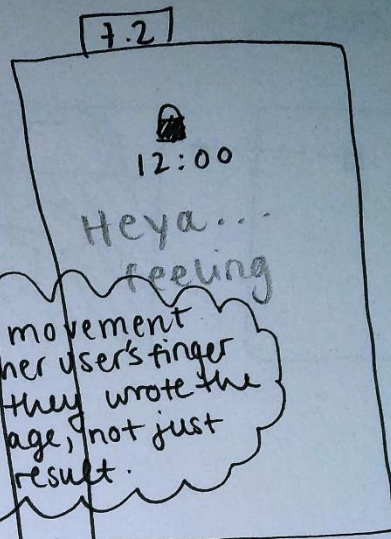 7.2
12:00
Heya...
feeling
movement
her user's finger
they wrote the
age, not just
result.